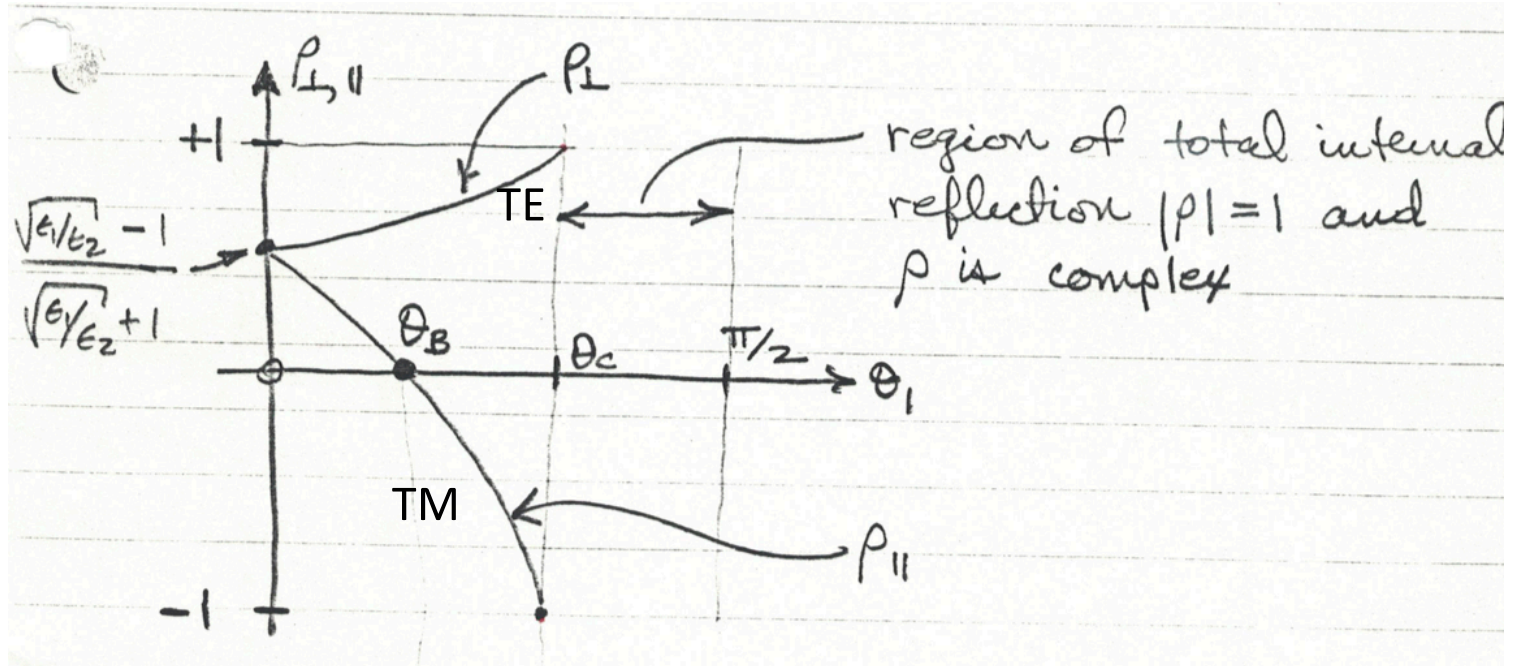 ρ⊥,∥
ρ⊥
+1
region of total internal
reflection |ρ| = 1 and
ρ is complex
TE
√ε₁/ε₂ - 1
√ε₁/ε₂ + 1
θB
θc
π/2
θ₁
TM
ρ∥
-1